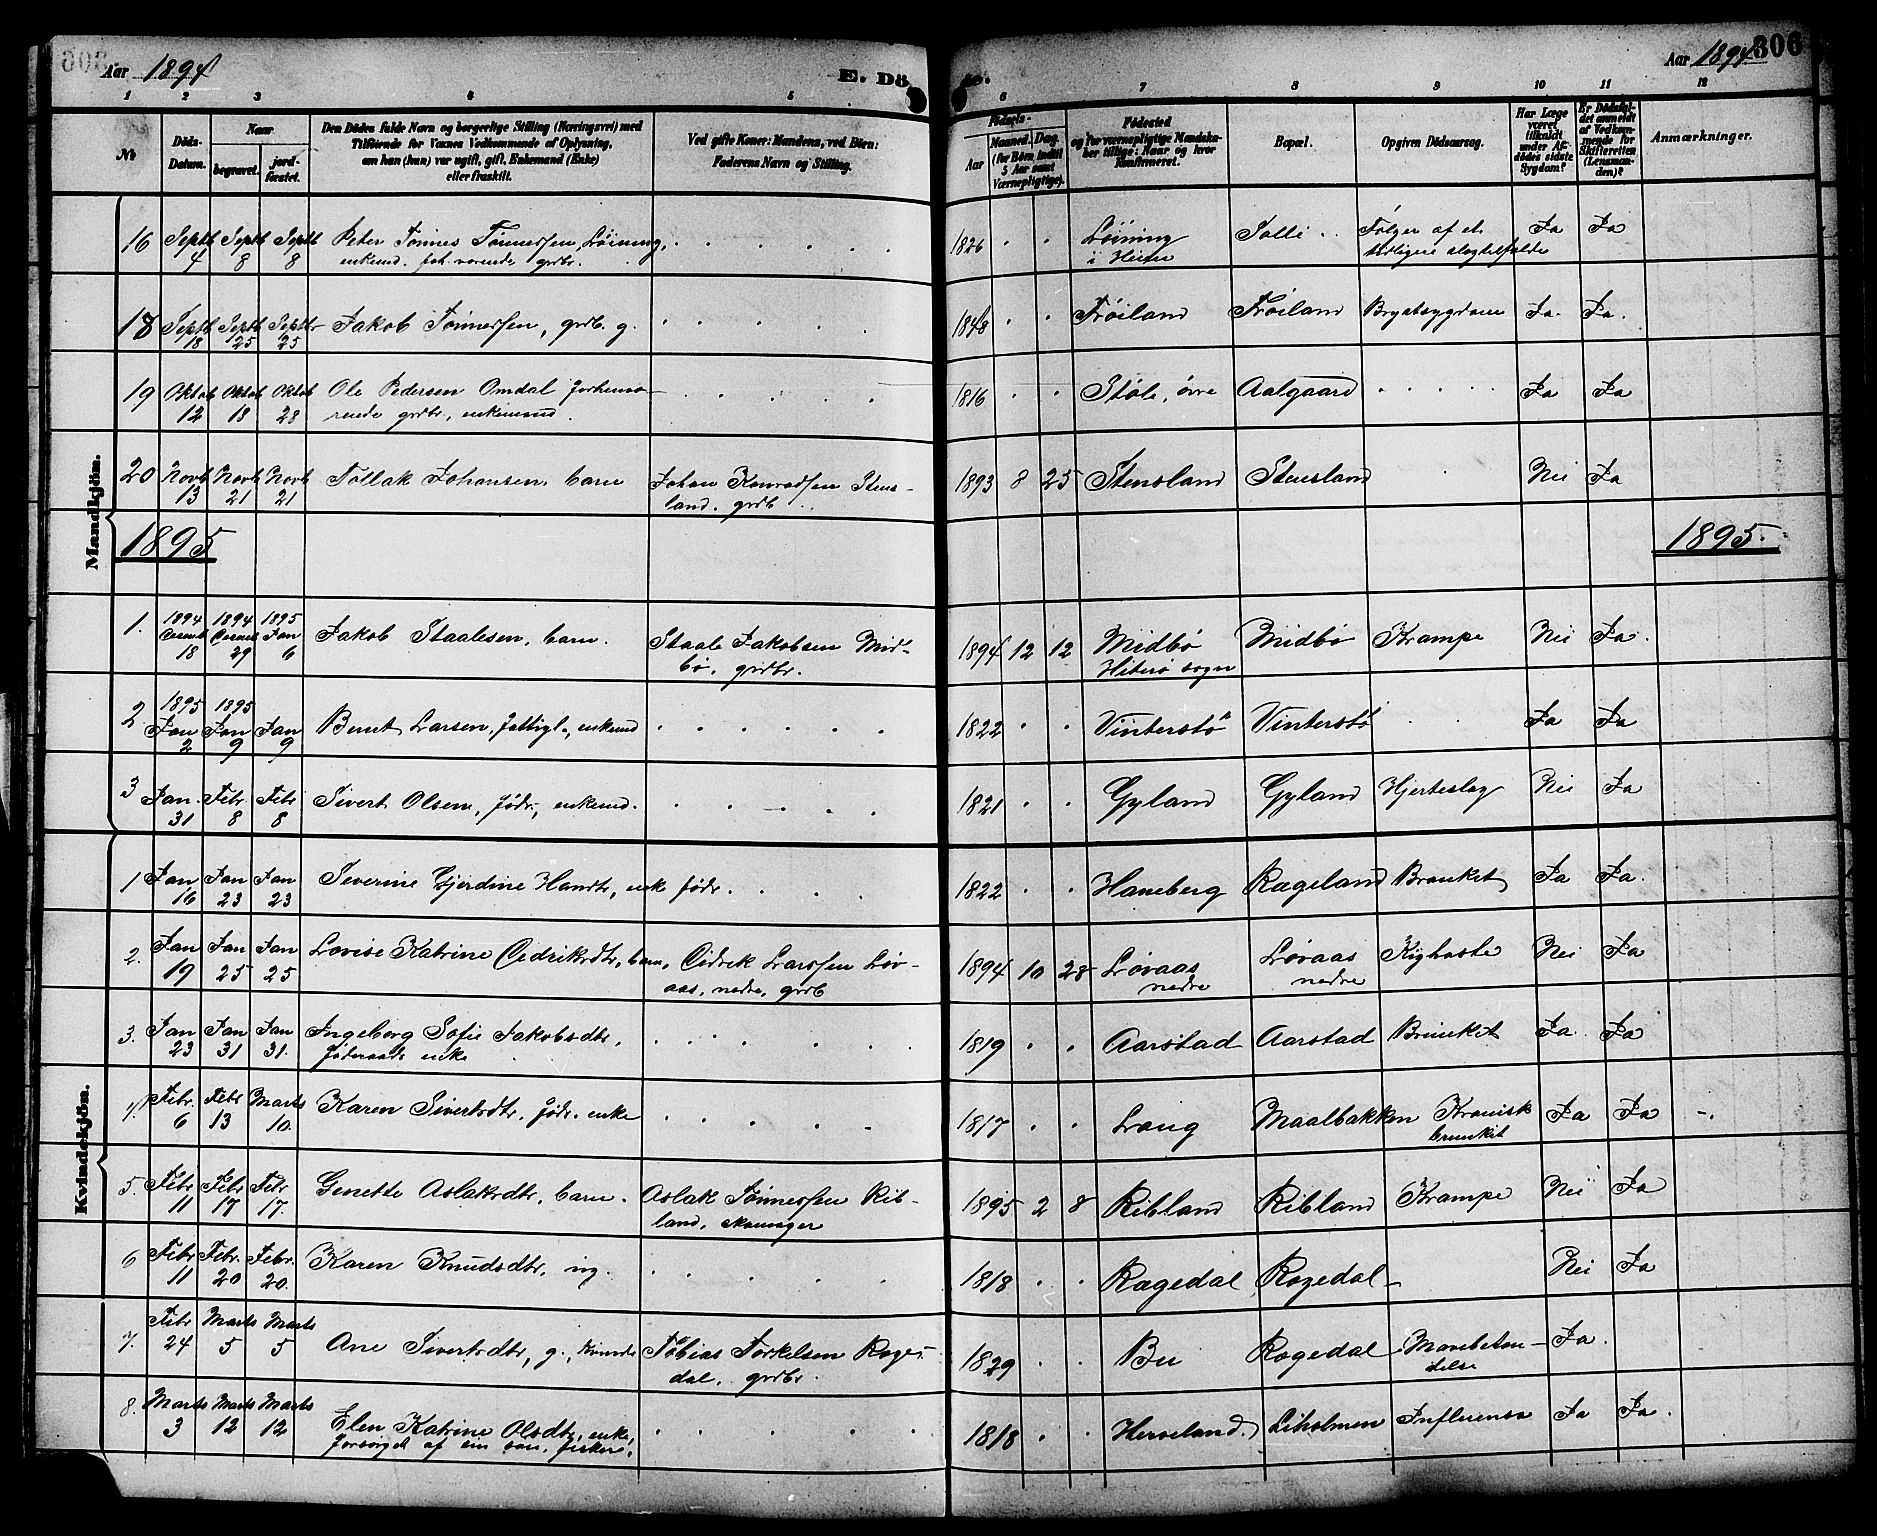 Aar 1894
E. Dö
de.
Aar 1894
306
1 2 3 4 5 6 7 8 9 10 11 12
No
Döds-Datum.
Naar
begravet.
jordfæstet.
Den Dödes fulde Navn og borgerlige Stilling (Næringsvei) med
Tilföiende for Voxnes Vedkommende af Oplysning,
om han (hun) var ugift, gift, Enkemand (Enke)
eller fraskilt.
Ved gifte Koner: Mandens, ved Börn:
Faderens Navn og Stilling.
Födsels-
Aar
Maaned. Dag.
(for Börn indtil
5 Aar samt
Værnepligtige).
Födested
og for værnepligtige Mandskaber tillige: Naar og hvor
Konfirmeret.
Bopæl.
Opgiven Dödsaarsag.
Har Læge
været
tilkaldt
under Afdödes sidste
Sygdom?
Er Dödsfaldet anmeldt
af Vedkommende for
Skifteretten
(Lensmanden)?
Anmærkninger.
Mandkjön.
16 Septb 4 Septb 8 Septb 8 Peter Tönnes Tönnessen, Löining, 1826 Löining Salli Følger af et Ja Ja
enkemd. foh. værende grdbr. i Heien tidligere slagtilfælde
18 Septb 18 Septb 25 Septb 25 Jakob Tønnessen, grdb. g. 1848 Frøiland Frøiland Brystsygdom Ja. Ja.
19 Oktob 12 Oktob 18 Oktob 28 Ole Pedersen Omdal forhenvæ- 1816 Støle, øvre Aalgaard Ja Ja
rende grdbr., enkemand.
20 Novb 13 Novb 21 Novb 21 Tollak Johansen, barn Johan Konradsen Stens- 1893 8 25 Stensland Stensland Nei Ja
land. grdb
1895
1895.
1. 1894 Decemb 18 1894 Decemb 29 1895 Jan 6 Jakob Staalesen, barn. Staale Jakobsen Mid- 1894 12 12 Midbø Midbø Krampe Nei Ja.
bø, grdbr. Hiterø sogn
2. 1895 Jan 2 1895 Jan 9 Jan 9 Bernt Larsen, fattigl., enkemd 1822 Vinterstø Vinterstø Ja Ja
3 Jan. 31 Febr 8 Febr 8 Sivert Olsen, födr., enkemd. 1821 Gyland Gyland Hjerteslag Nei Ja
Kvindekjön.
1 Jan 16 Jan 23 Jan 23 Severine Gjerdine Hansdtr, enke födr. 1822 Haneberg Rægeland Bronkit Ja Ja.
2. Jan 19 Jan 25 Jan 25 Lovise Katrine Cedriksdtr, barn, Cedrik Larssen Løv- 1894 10 28 Løvaas Løvaas Kighoste Nei Ja
aas, nedre, grdb nedre nedre
3. Jan 23 Jan 31 Jan 31. Ingeborg Sofie Jakobsdtr, 1819 Aarstad Aarstad Bronkit Ja. Ja
föderaads enke
4. Febr. 6 Febr 13 Marts 10. Karen Sivertsdtr, födr. enke 1817 Lang Maalbakken Kronisk Ja Ja
bronkit
5. Febr 11 Febr 17 Febr 17. Genette Aslaksdtr, barn. Aslak Tønnessen Rib- 1895 2 8 Ribland Ribland Krampe Nei Ja
land, skomager
6 Febr 11 Febr. 20 Febr. 20. Karen Knudsdtr, ug. 1818 Ragedal Ragedal Nei Ja
7. Febr 24 Marts 5 Marts 5 Ane Sivertsdtr, g., Tobias Torkelsen Rage- 1829 Bu Ragedal Mavebetæn- Ja.
dal, grdbr. delse
8. Marts 3 Marts 12 Marts 12 Elen Katrine Olsdtr, enke, 1818 Herveland. Liholmen Influensa Ja Ja.
forsörget af sin søn, fisker.